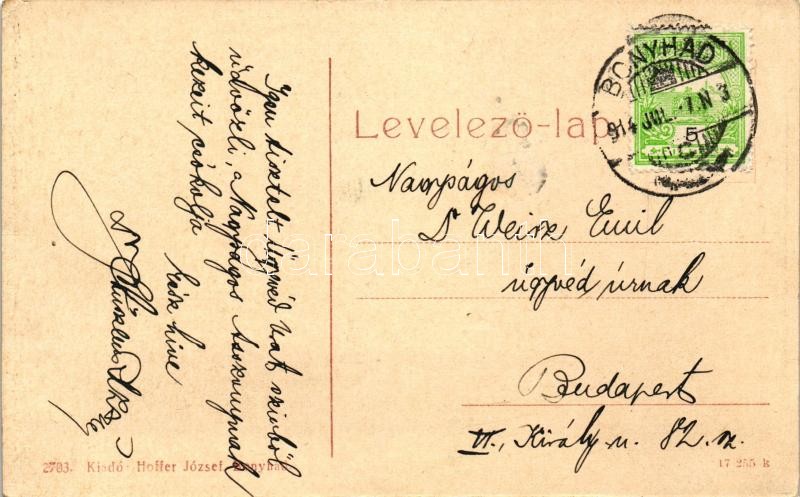 Levelező-lap
BONYHÁD
914 JUL. -1. N 3
5
Nagyságos
Dr Weisz Emil
ügyvéd úrnak
Budapest
VI., Király u. 82. sz.
Igen tisztelt Ügyvéd Urat szivből
üdvözli, a Nagyságos Asszonynak
kezeit csókolja
kész hive
Dr
2703. Kiadó Hoffer József, Bonyhád
17 255 k
darabanth